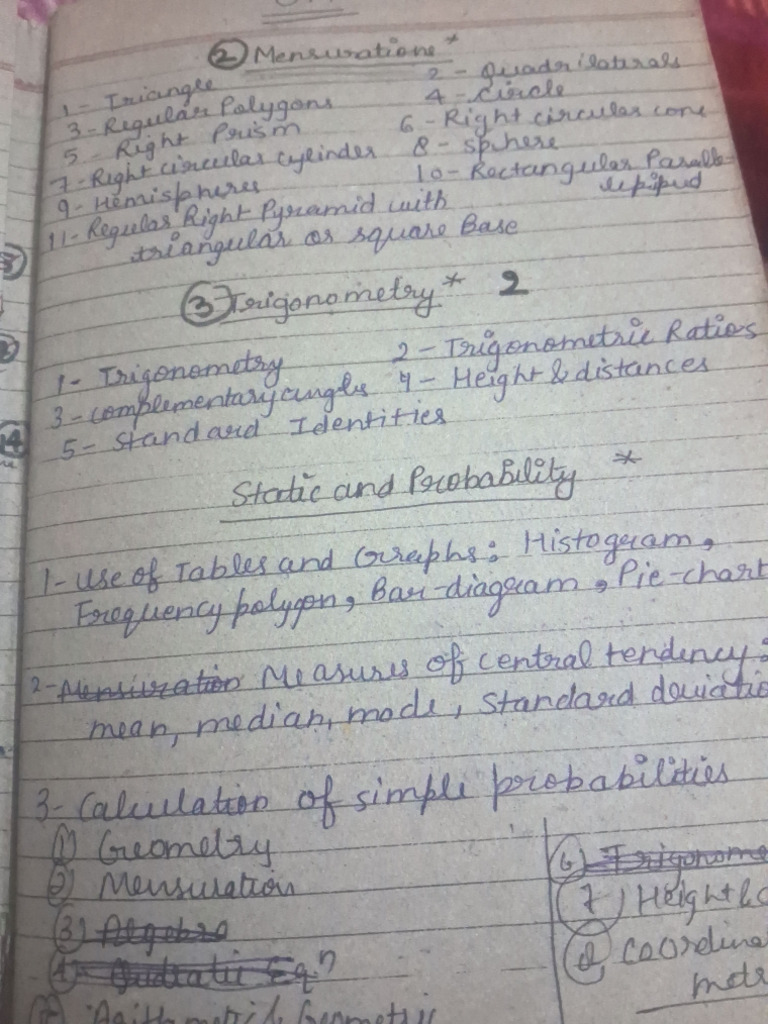 ② Mensurations *
1 - Triangle 2 - Quadrilaterals
3 - Regular Polygons 4 - Circle
5 - Right Prism 6 - Right circular cone
7 - Right circular cylinder 8 - sphere
9 - Hemispheres 10 - Rectangular Paralle-
lepiped
11 - Regular Right Pyramid with
triangular or square Base
③ Trigonometry * 2
1 - Trigonometry 2 - Trigonometric Ratios
3 - complementary angles 4 - Height & distances
5 - Standard Identities
Static and Probability *
1 - Use of Tables and Graphs: Histogram,
Frequency polygon, Bar-diagram, Pie-chart
2 - Mensuration Measures of central tendency:
mean, median, mode, standard deviatio
3 - Calculation of simple probabilities
① Geometry
② Mensuration
③ Algebra
④ Quadratic Eqⁿ
6) Trigonome
7) Height &
8) Coordina